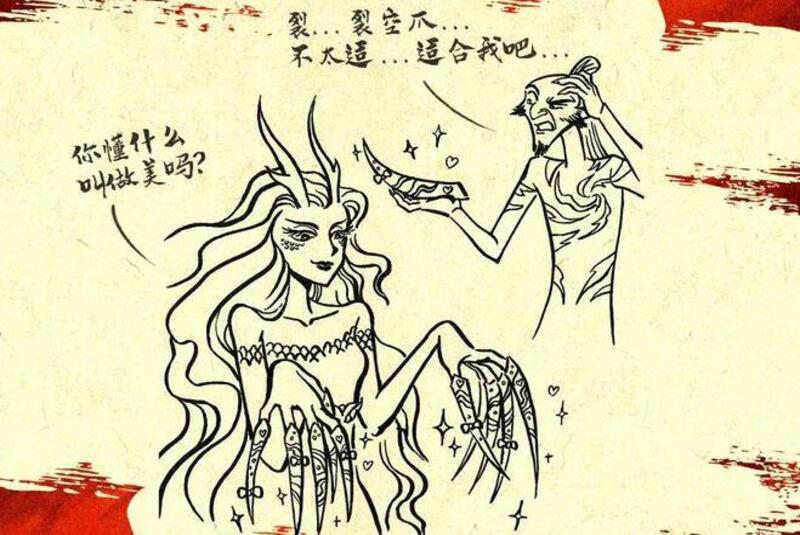 裂...裂空爪...
不太适...适合我吧...
你懂什么
叫做美吗?